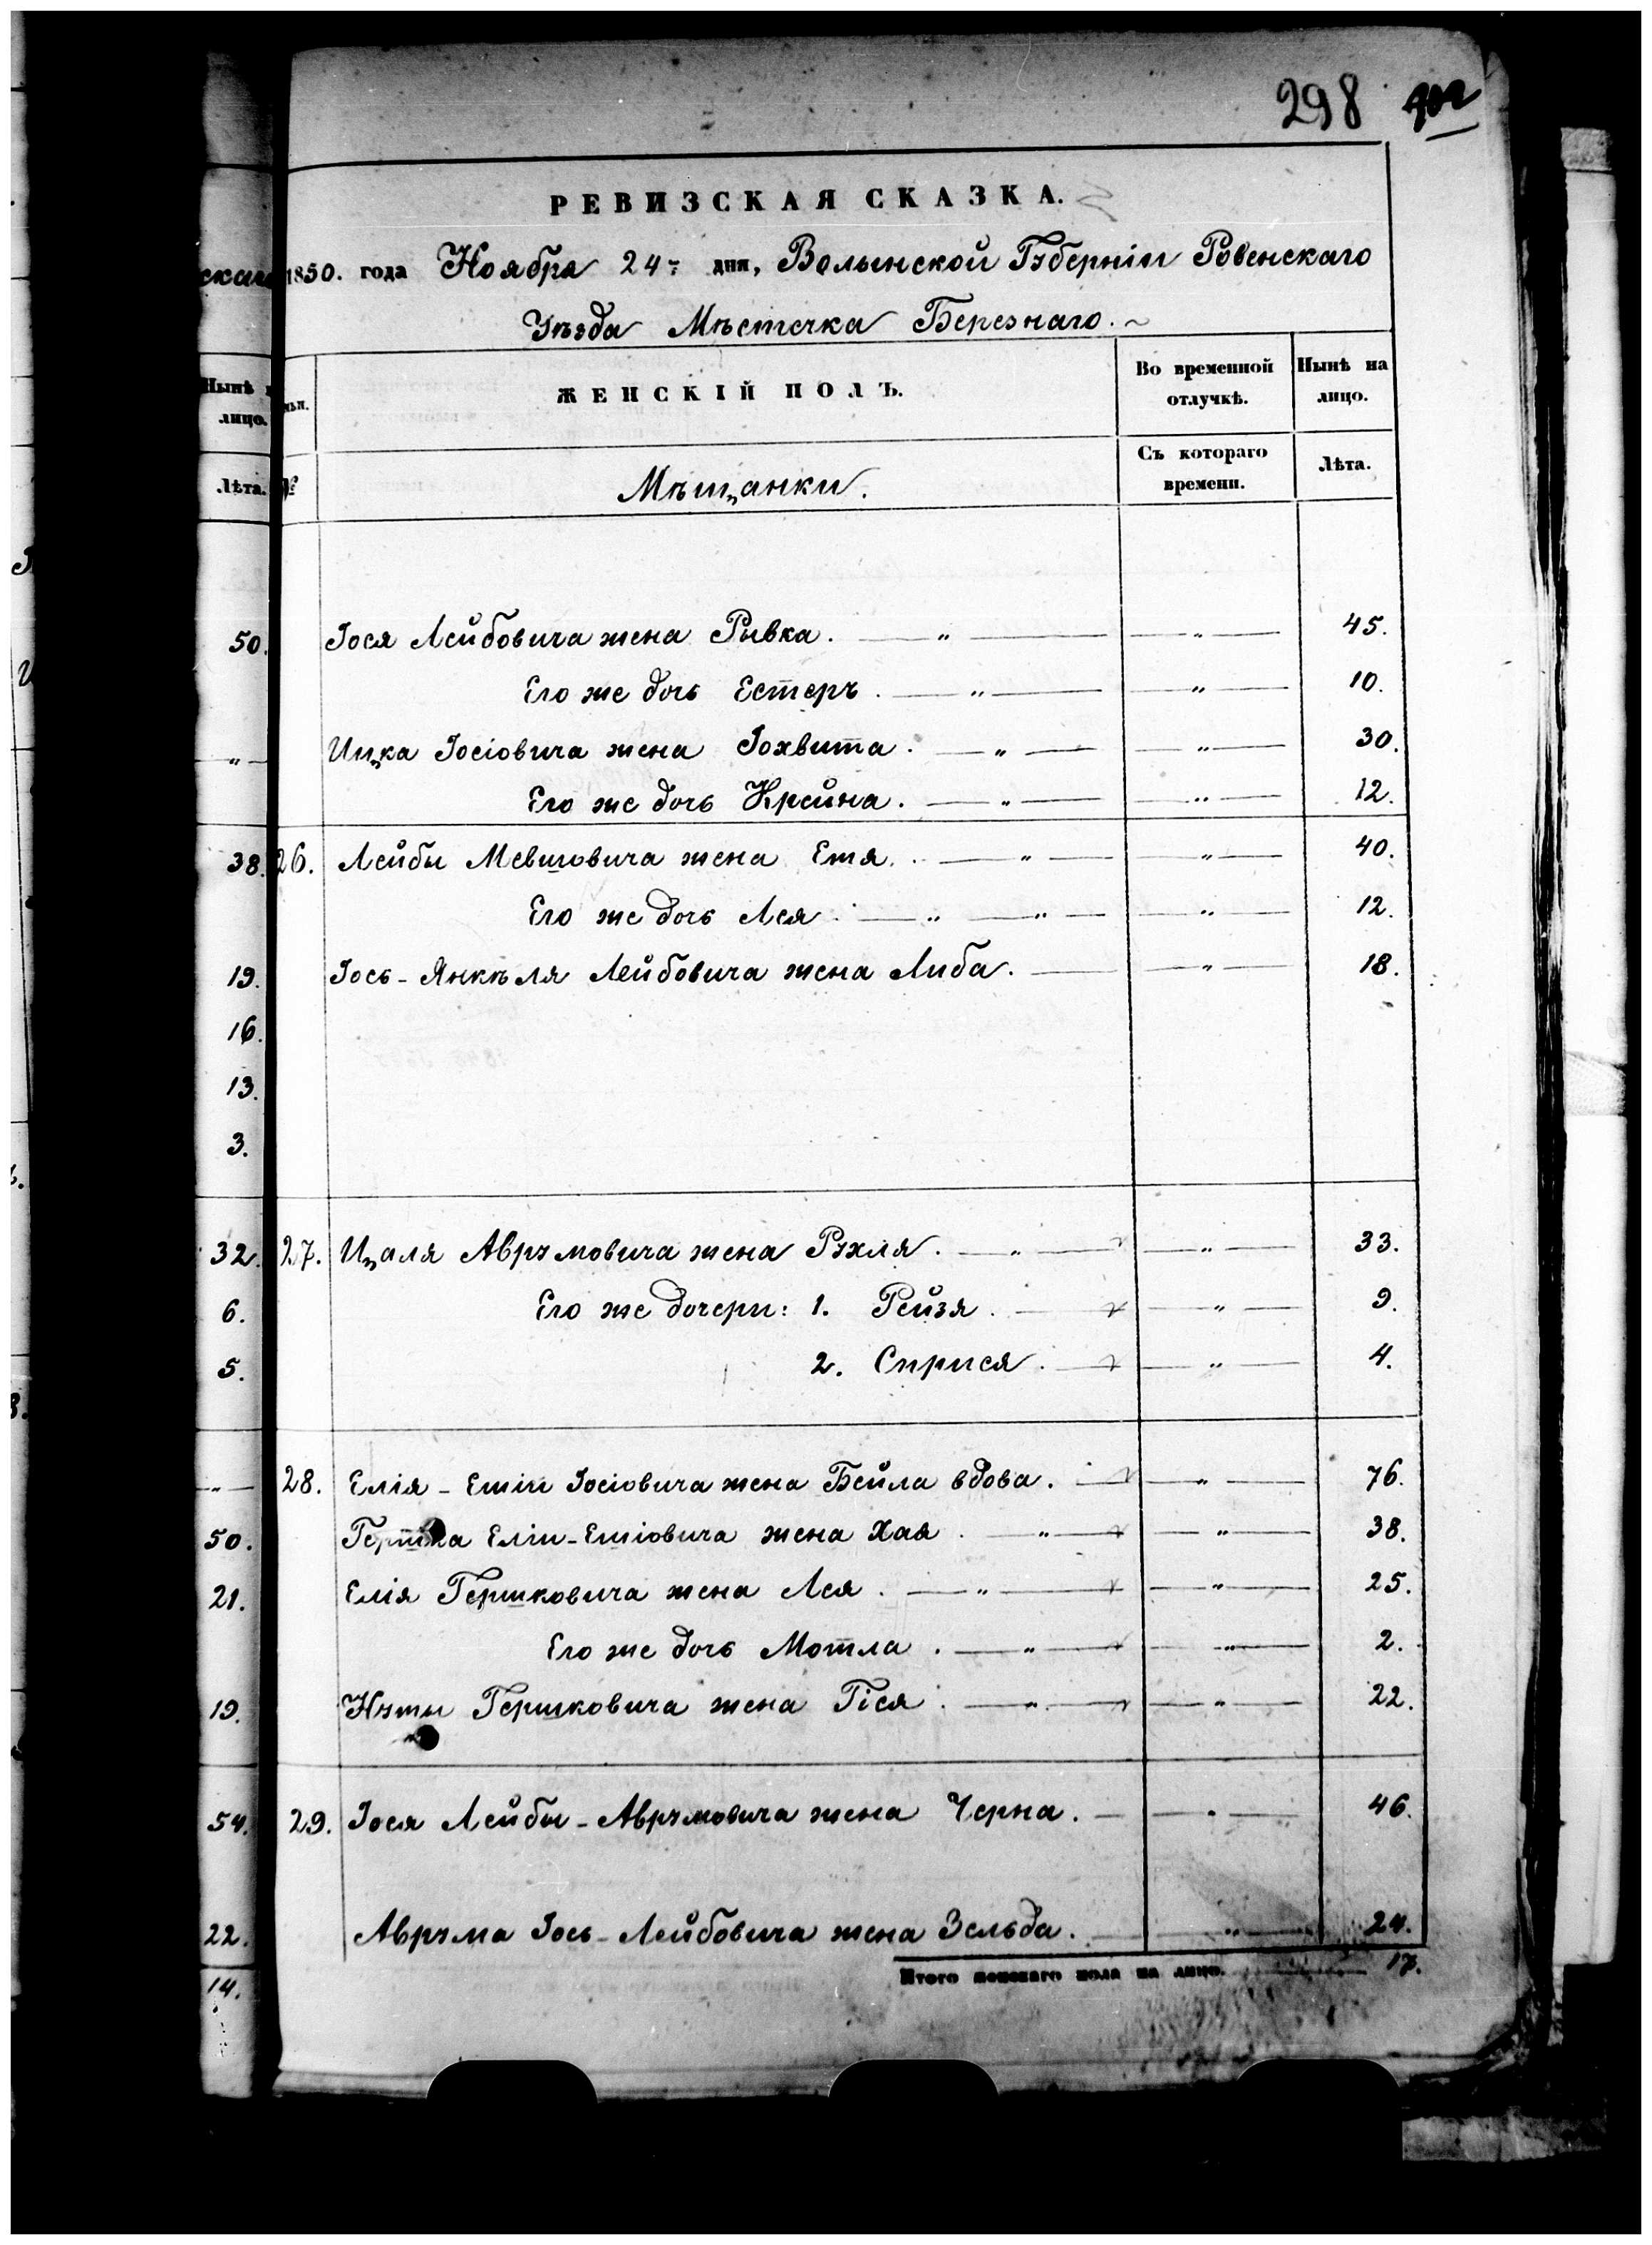 298
РЕВИЗСКАЯ СКАЗКА.
1850. года Ноября 24 дня, Волынской Губерніи Ровенскаго
Уѣзда Мѣстечка Березнаго.
Нынѣ
лицо.
ЖЕНСКІЙ ПОЛЪ.
Во временной отлучкѣ.
Нынѣ на лицо.
Лѣта. №
Мѣщанки.
Съ котораго времени.
Лѣта.
50. Іося Лейбовича жена Рывка. — „ — — „ — 45.
Его же дочь Естеръ. — „ — — „ — 10.
— „ — Ицка Іосіовича жена Іохвита. — „ — — „ — 30.
Его же дочь Крейна. — „ — — „ — 12.
38. 26. Лейбы Мевшовича жена Етя. — „ — — „ — 40.
Его же дочь Лея. — „ — „ — — „ — 12.
19. Іось-Янкѣля Лейбовича жена Либа. — — „ — 18.
16.
13.
3.
32. 27. Ицаля Аврумовича жена Рухля. — „ — — „ — 33.
6. Его же дочери: 1. Рейзя. — — „ — 9.
5. 2. Сприся. — — „ — 4.
— „ — 28. Елія-Ешіи Іосіовича жена Бейла вдова. — — „ — 76.
50. Гершка Еліи-Ешіовича жена Хая. — „ — — „ — 38.
21. Елія Гершковича жена Лея. — „ — — „ — 25.
Его же дочь Мотла. — „ — — „ — 2.
19. Нуты Гершковича жена Гіся. — „ — — „ — 22.
54. 29. Іося Лейбы-Аврумовича жена Черна. — — „ — 46.
22. Аврума Іось-Лейбовича жена Зельда. — — „ — 24.
14. Итого женскаго пола на лицо. 17.